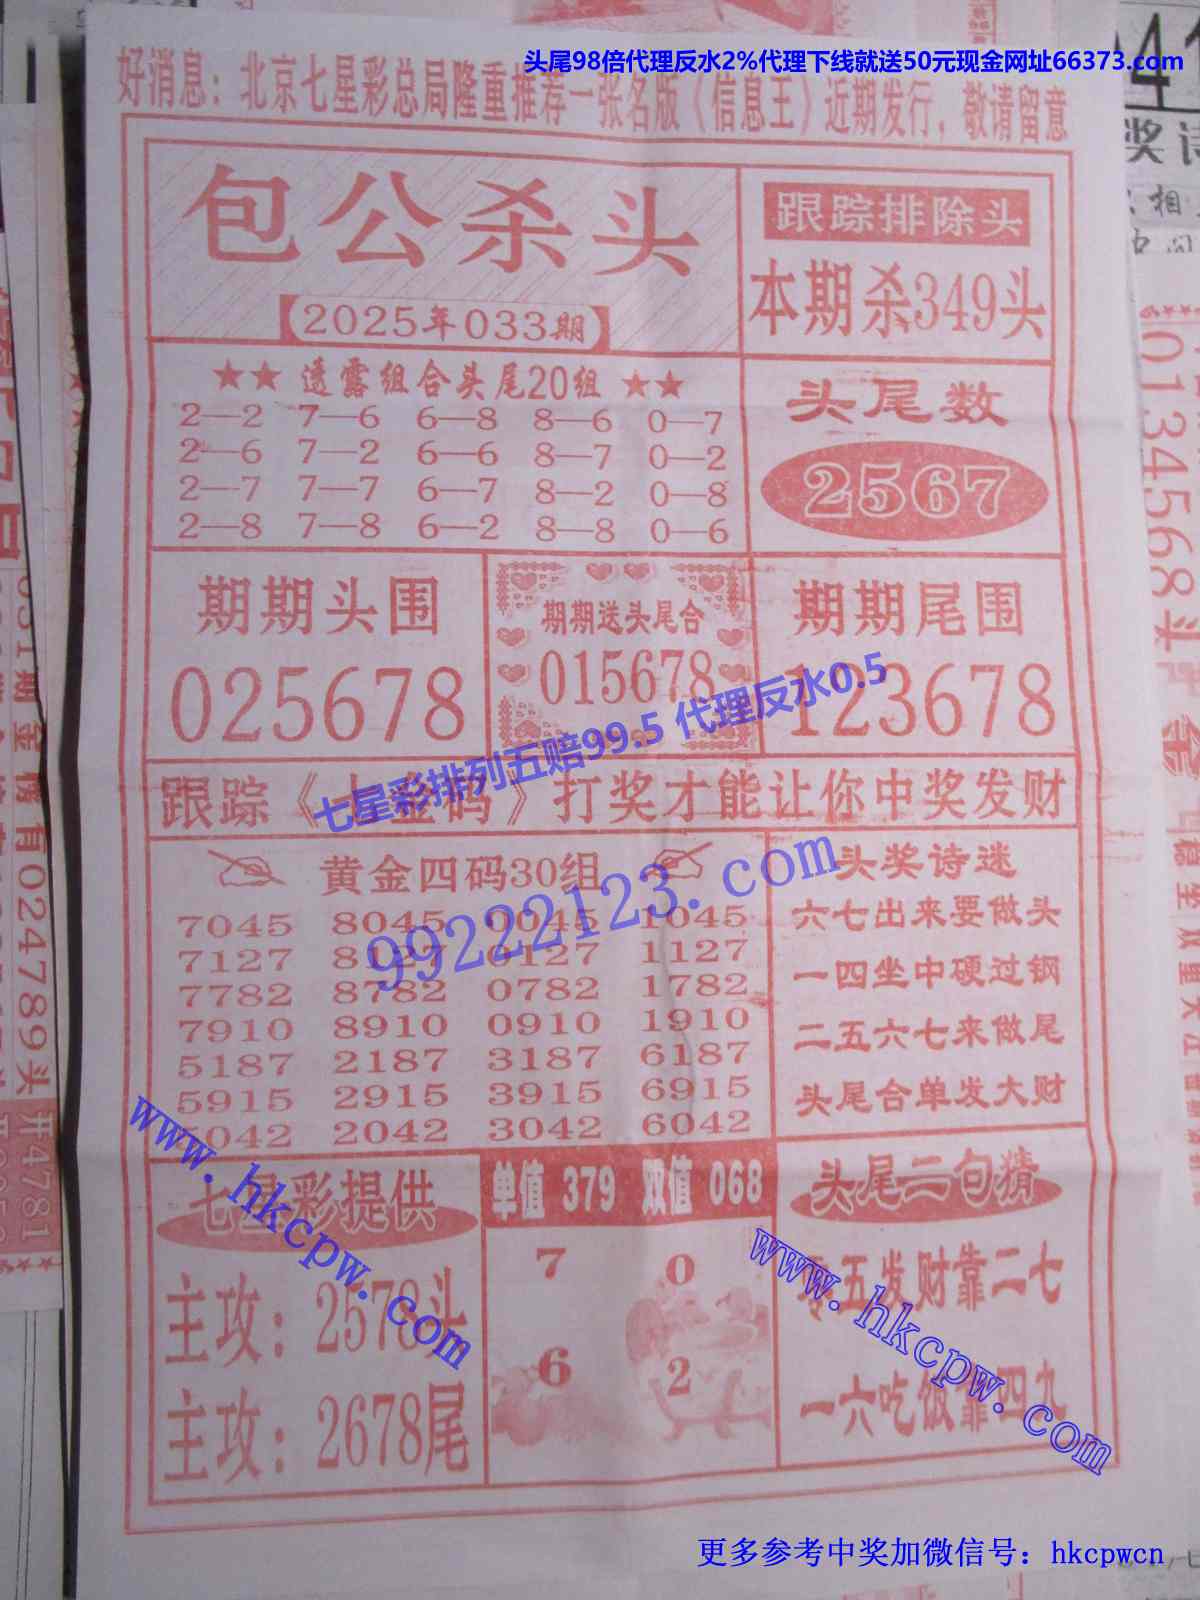 头尾98倍代理反水2%代理下线就送50元现金网址66373.com
好消息：北京七星彩总局隆重推荐一张名版《信息王》近期发行，敬请留意
包公杀头
【2025年033期】
跟踪排除头
本期杀349头
★★ 透露组合头尾20组 ★★
2—2 7—6 6—8 8—6 0—7
2—6 7—2 6—6 8—7 0—2
2—7 7—7 6—7 8—2 0—8
2—8 7—8 6—2 8—8 0—6
头尾数
2567
期期头围
025678
期期送头尾合
015678
期期尾围
123678
七星彩排列五赔99.5 代理反水0.5
跟踪《七金码》打奖才能让你中奖发财
黄金四码30组
7045 8045 0045 1045
7127 8127 0127 1127
7782 8782 0782 1782
7910 8910 0910 1910
5187 2187 3187 6187
5915 2915 3915 6915
5042 2042 3042 6042
99222123.com
头奖诗迷
六七出来要做头
一四坐中硬过钢
二五六七来做尾
头尾合单发大财
七星彩提供
主攻：2578头
主攻：2678尾
www.hkcpw.com
单值 379 双值 068
7 0
6 2
头尾二句猜
零五发财靠二七
一六吃饭靠四九
www.hkcpw.com
更多参考中奖加微信号：hkcpwcn
013456 8头
031期金榜有024789头
开4781